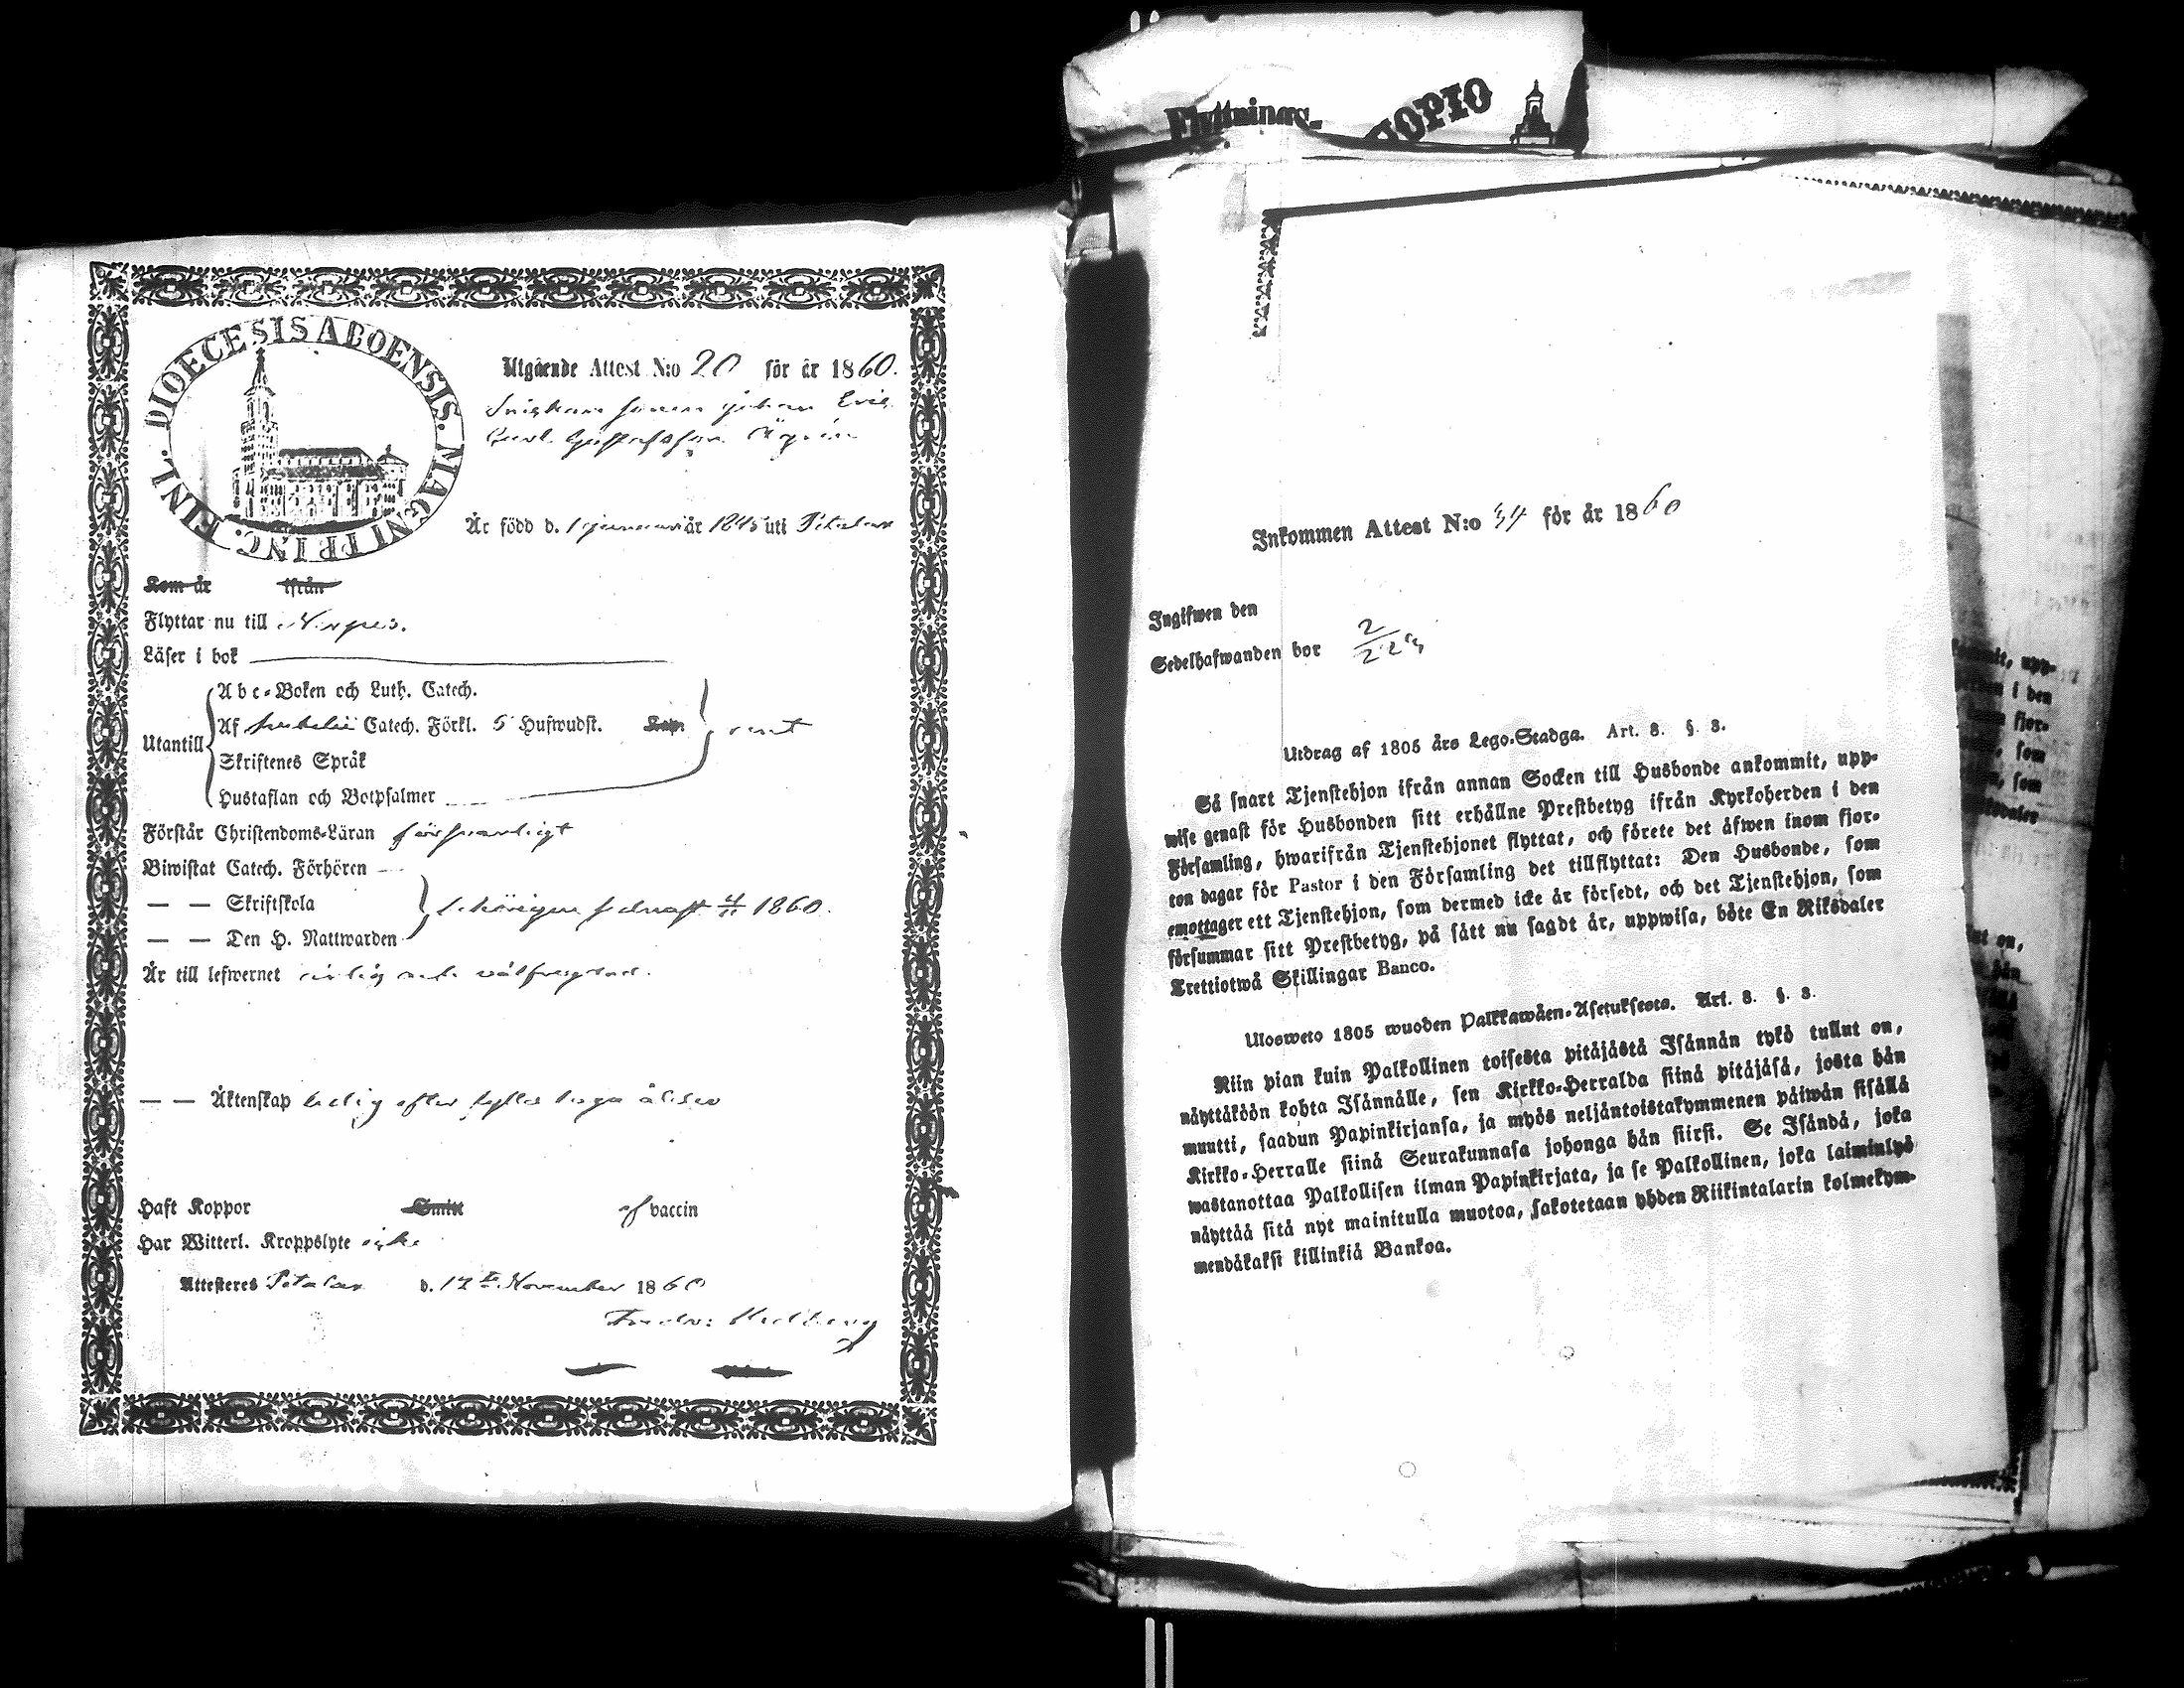 DIOECESIS ABOENSIS. MAGNI PRINC. FINL.
Utgående Attest N:o 20 för år 1860.
Johan Eric
Gustafsson
Är född d. 1 januari år 1845 uti Petalax
Kom år ifrån
Flyttar nu till Nerpes.
Läser i bok
Utantill
Abc-Boken och Luth. Catech.
Af Catech. Förkl. 5 Hufwudst. Kap.
Skriftenes Språk
Hustaflan och Botpsalmer
Förstår Christendoms-Läran försvarligt
Biwistat Catech. Förhören
— — Skriftskola
— — Den H. Nattwarden
behörigen sednast 4/11 1860.
Är till lefwernet ärlig och välfrejdad.
— — Äktenskap ledig efter
Haft Koppor Smitt af vaccin
Har Witterl. Kroppslyte icke
Attesteres Petalax d. November 1860
Fredr: Hedberg
Flyttnings-
UOPIO
Inkommen Attest N:o 34 för år 1860
Ingifwen den
Sedelhafwanden bor
Utdrag af 1805 års Lego-Stadga. Art. 8. §. 3.
Så snart Tjenstehjon ifrån annan Socken till Husbonde ankommit, upp-
wise genast för Husbonden sitt erhållne Prestbetyg ifrån Kyrkoherden i den
Församling, hwarifrån Tjenstehjonet flyttat, och förete det äfwen inom fjor-
ton dagar för Pastor i den Församling det tillflyttat: Den Husbonde, som
emottager ett Tjenstehjon, som dermed icke är försedt, och det Tjenstehjon, som
försummar sitt Prestbetyg, på sätt nu sagdt är, uppwisa, böte En Riksdaler
Trettiotwå Skillingar Banco.
Ulosweto 1805 wuoden Palkkawäen-Asetuksesta. Art. 8. §. 3.
Niin pian kuin Palkollinen toisesta pitäjästä Isännän tykö tullut on,
näyttäköön kohta Isännälle, sen Kirkko-Herralda siinä pitäjäsä, josta hän
muutti, saadun Papinkirjansa, ja myös neljäntoistakymmenen päiwän sisällä
Kirkko-Herralle siinä Seurakunnasa johonga hän siirsi. Se Isändä, joka
wastanottaa Palkollisen ilman Papinkirjata, ja se Palkollinen, joka laiminlyö
näyttää sitä nyt mainitulla muotoa, sakotetaan yhden Riikintalarin kolmekym-
mendäkaksi killinkiä Bankoa.